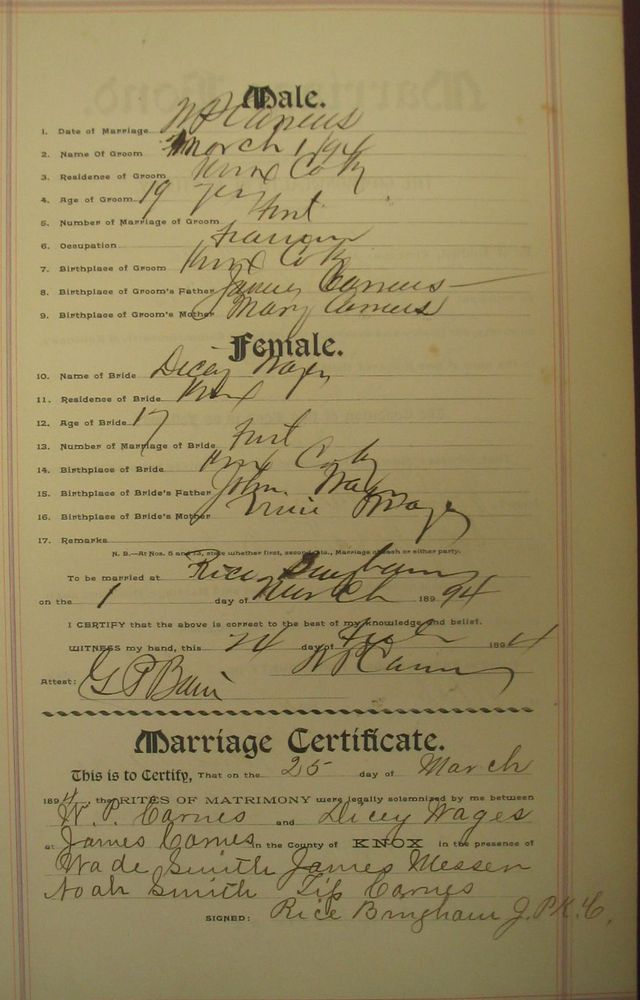 Male.
1. Date of Marriage W P Carnes
2. Name Of Groom March 1 1894
3. Residence of Groom Knox Co Ky
4. Age of Groom 19 yrs
5. Number of Marriage of Groom First
6. Occupation Farmer
7. Birthplace of Groom Knox Co Ky
8. Birthplace of Groom's Father James Carnes
9. Birthplace of Groom's Mother Mary Carnes
Female.
10. Name of Bride Dicey Wages
11. Residence of Bride Knox
12. Age of Bride 17
13. Number of Marriage of Bride First
14. Birthplace of Bride Knox Co Ky
15. Birthplace of Bride's Father John Wages
16. Birthplace of Bride's Mother Wages
17. Remarks
N. B.—At Nos. 5 and 13, state whether first, second, etc., Marriage of each or either party.
To be married at Rice Bingham
on the 1 day of March 1894
I CERTIFY that the above is correct to the best of my knowledge and belief.
WITNESS my hand, this 24 day of Feb 1894
W P Carnes
Attest: G P Bain
Marriage Certificate.
This is to Certify, That on the 25 day of March
1894, the RITES OF MATRIMONY were legally solemnized by me between
W. P. Carnes and Dicey Wages
at James Carnes in the County of KNOX in the presence of
Wade Smith James Messer
Noah Smith Tip Carnes
SIGNED: Rice Bingham J. P. K. C.